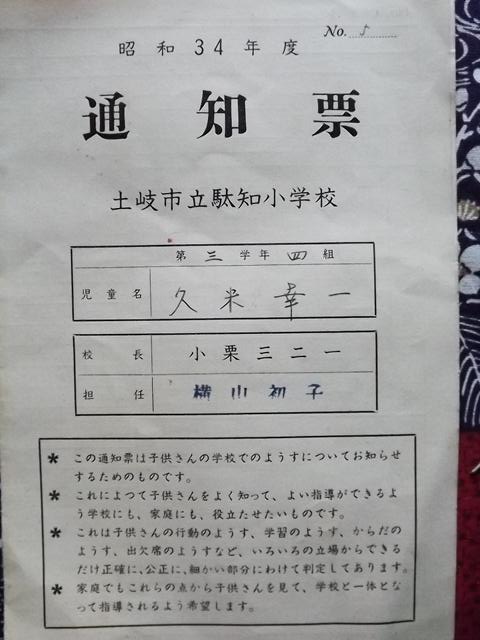 No. 5
昭和34年度
通知票
土岐市立駄知小学校
第三学年四組
児童名 久米幸一
校長 小栗三二一
担任 横山初子
* この通知票は子供さんの学校でのようすについてお知らせ
するためのものです。
* これによつて子供さんをよく知って、よい指導ができるよ
う学校にも、家庭にも、役立たせたいものです。
* これは子供さんの行動のようす、学習のようす、からだの
ようす、出欠席のようすなど、いろいろの立場からできる
だけ正確に、公正に、細かい部分にわけて判定してあります。
* 家庭でもこれらの点から子供さんを見て、学校と一体とな
って指導されるよう希望します。